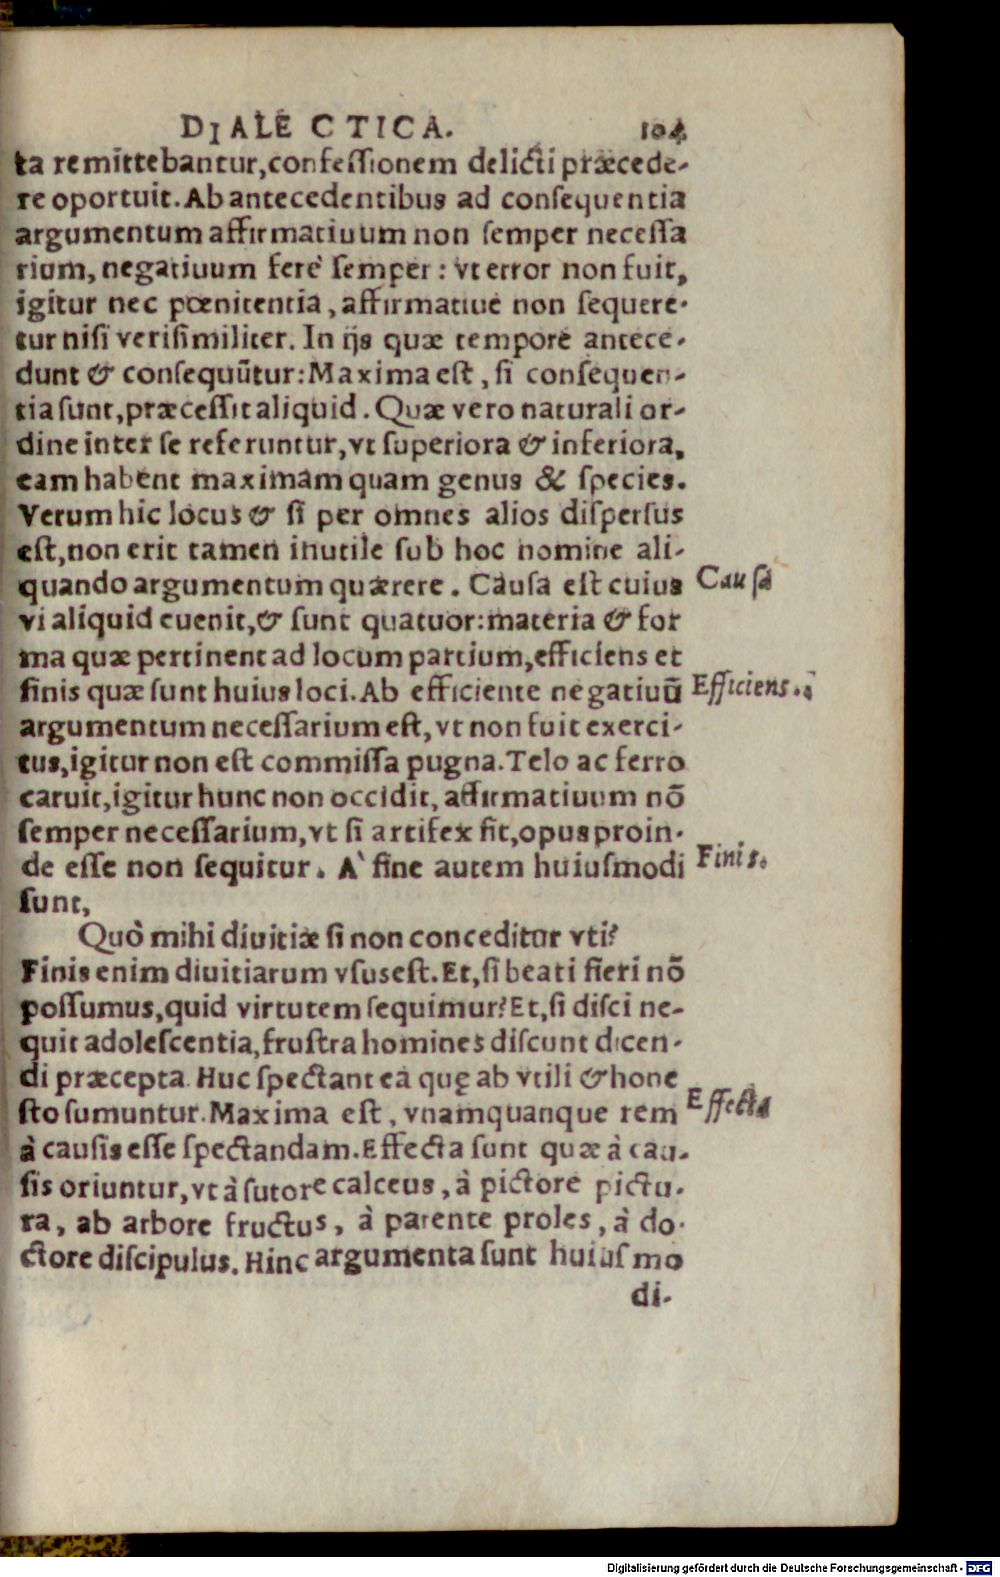 DIALECTICA. 104
ta remittebantur, confeſſionem delicti præcede-
re oportuit. Ab antecedentibus ad conſequentia
argumentum affirmatiuum non ſemper neceſſa
rium, negatiuum ferè ſemper: vt error non fuit,
igitur nec pœnitentia, affirmatiue non ſequere-
tur niſi veriſimiliter. In ijs quæ tempore antece-
dunt & conſequũtur: Maxima eſt, ſi conſequen-
tia ſunt, præceſſit aliquid. Quæ vero naturali or-
dine inter ſe referuntur, vt ſuperiora & inferiora,
eam habent maximam quam genus & ſpecies.
Verum hic locus & ſi per omnes alios diſperſus
eſt, non erit tamen inutile ſub hoc nomine ali-
quando argumentum quærere. Cauſa eſt cuius
Cauſa
vi aliquid euenit, & ſunt quatuor: materia & for
ma quæ pertinent ad locum partium, efficiens et
finis quæ ſunt huius loci. Ab efficiente negatiuũ
Efficiens.
argumentum neceſſarium eſt, vt non fuit exerci-
tus, igitur non eſt commiſſa pugna. Telo ac ferro
caruit, igitur hunc non occidit, affirmatiuum nõ
ſemper neceſſarium, vt ſi artifex ſit, opus proin-
de eſſe non ſequitur. A` fine autem huiuſmodi
Finis.
ſunt,
Quò mihi diuitiæ ſi non conceditur vti?
Finis enim diuitiarum vſus eſt. Et, ſi beati fieri nõ
poſſumus, quid virtutem ſequimur? Et, ſi diſci ne-
quit adoleſcentia, fruſtra homines diſcunt dicen-
di præcepta. Huc ſpectant ea quę ab vtili & hone
ſto ſumuntur. Maxima eſt, vnamquanque rem
Effecta
à cauſis eſſe ſpectandam. Effecta ſunt quæ à cau-
ſis oriuntur, vt à ſutore calceus, à pictore pictu-
ra, ab arbore fructus, à parente proles, à do-
ctore diſcipulus. Hinc argumenta ſunt huiuſmo
di-
Digitalisierung gefördert durch die Deutsche Forschungsgemeinschaft - DFG